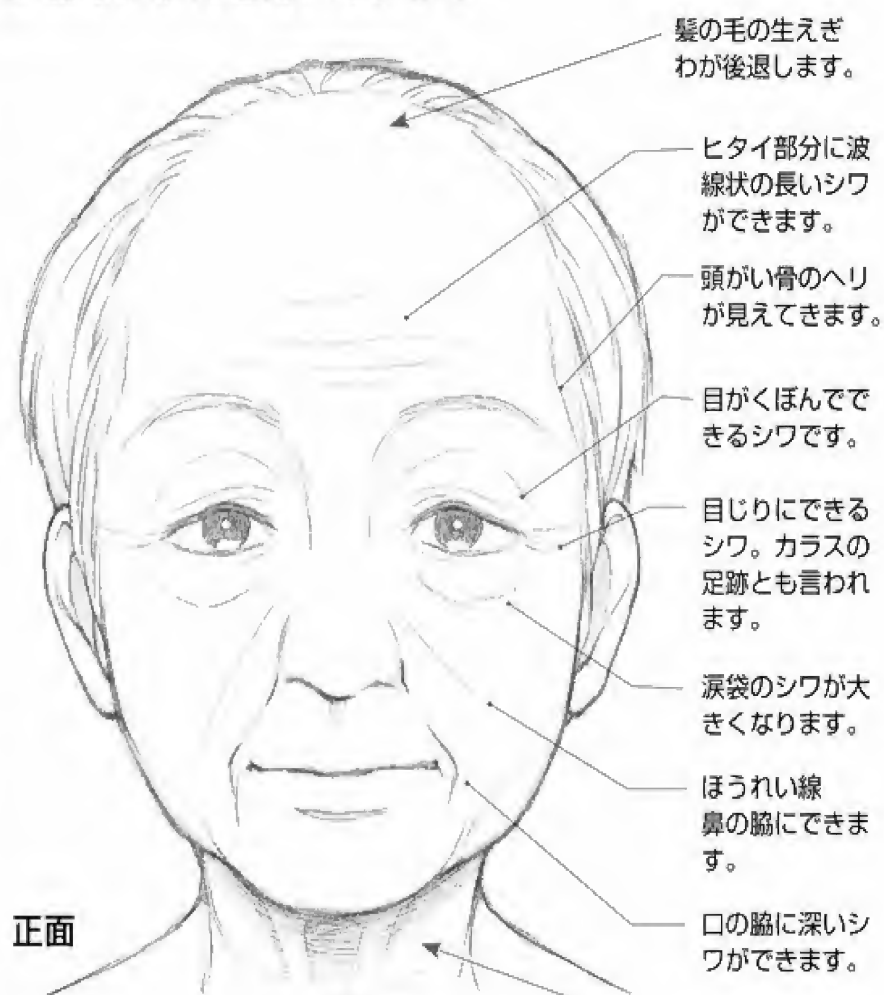 髪の毛の生えぎ
わが後退します。
ヒタイ部分に波
線状の長いシワ
ができます。
頭がい骨のヘリ
が見えてきます。
目がくぼんでで
きるシワです。
目じりにできる
シワ。カラスの
足跡とも言われ
ます。
涙袋のシワが大
きくなります。
ほうれい線
鼻の脇にできま
す。
口の脇に深いシ
ワができます。
正面